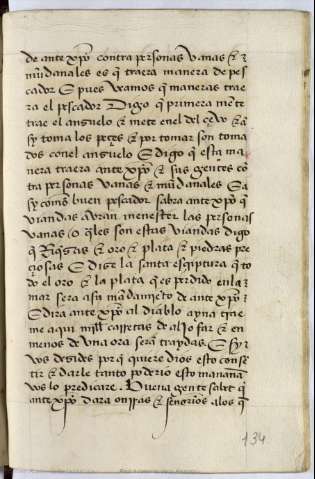 de ante xp̄o contra personas vanas &
mūdanales es q̄ traera manera de pes
cador E pues veamos q̄ maneras trae
ra el pescador Digo q̄ primera mēte
trae el anzuelo & mete enel del çevo & a
sy toma los peçes & por tomar son toma
dos conel anzuelo E digo q̄ esta ma
nera traera ante xp̄o & sus gentes cō
tra personas vanas & mūdanales Ca
sy como buen pescador sabra ante xp̄o q̄
viandas avran menester las personas
vanas o q̄les son estas viandas digo
q̄ Riq̄zas & oro & plata & piedras pre
çiosas E dize la santa escriptura q̄ to
do el oro & la plata q̄ es perdido enla
mar sera a su mādamiēto de ante xp̄o
E dira ante xp̄o al diablo ayna trae
me aqui mill carretas de aljofar & en
menos de una ora seran traydas E sy
vos dezides por q̄ quiere dios esto conse
tir & darle tanto poderio esto mañana
vos lo predicare. Buena gente sabet q̄
ante xp̄o dara onrras & señorios alos q̄
134